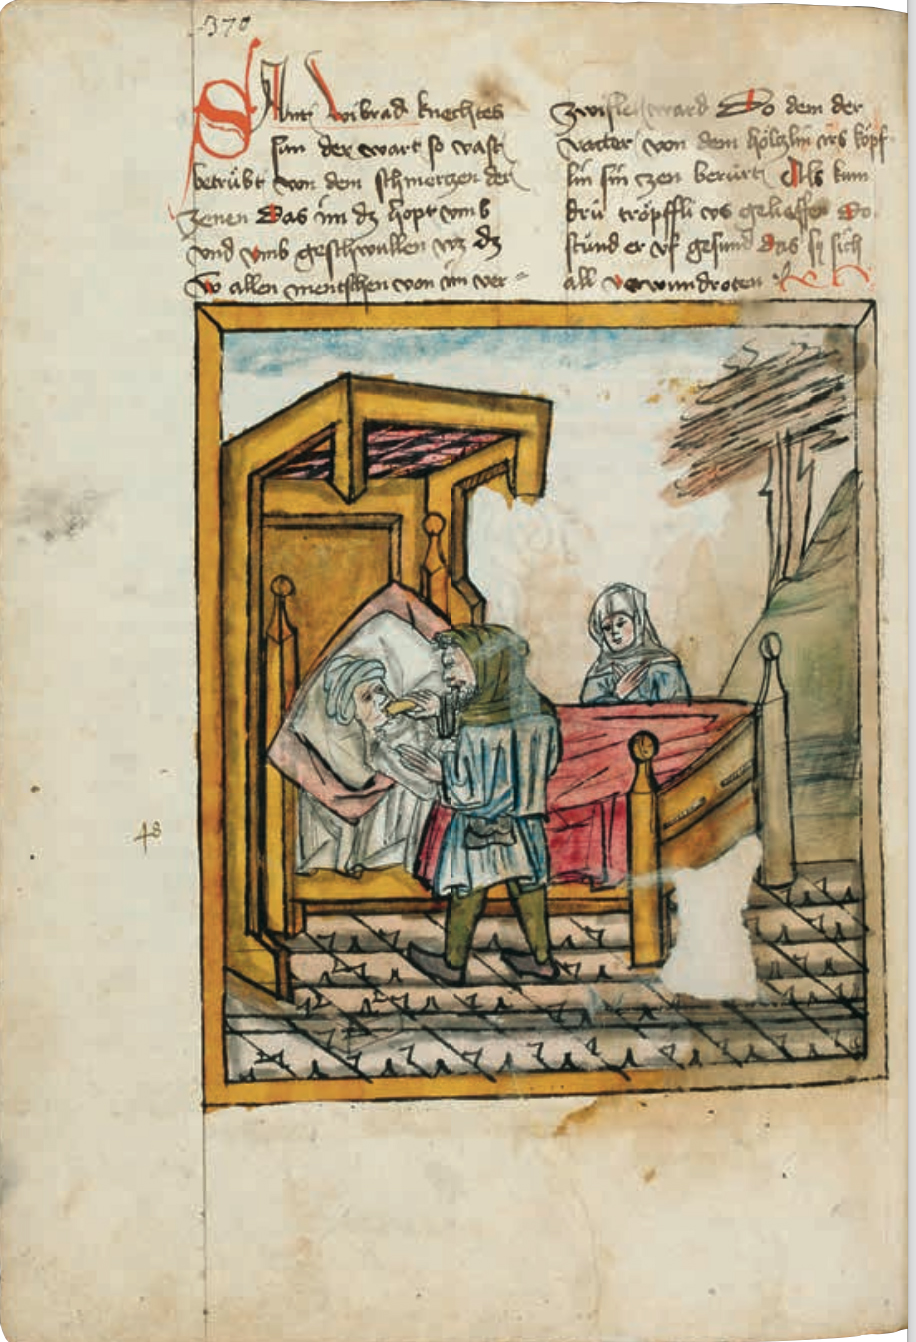 370
Sant wibrad knechtes
sun der wart so vast
betrübt von dem schmertzen der
zenen Das im dz hopt vmb
vnd vmb geschwullen wz dz
Er allen mentschen von im ver-
zwiflet ward Do dem der
vatter von dem höltzlin vss köpf-
lin sin zen berürt Als kum
drü tröpffli vs geluffen Do
stůnd er vf gesund das sy sich
all verwundroten
48